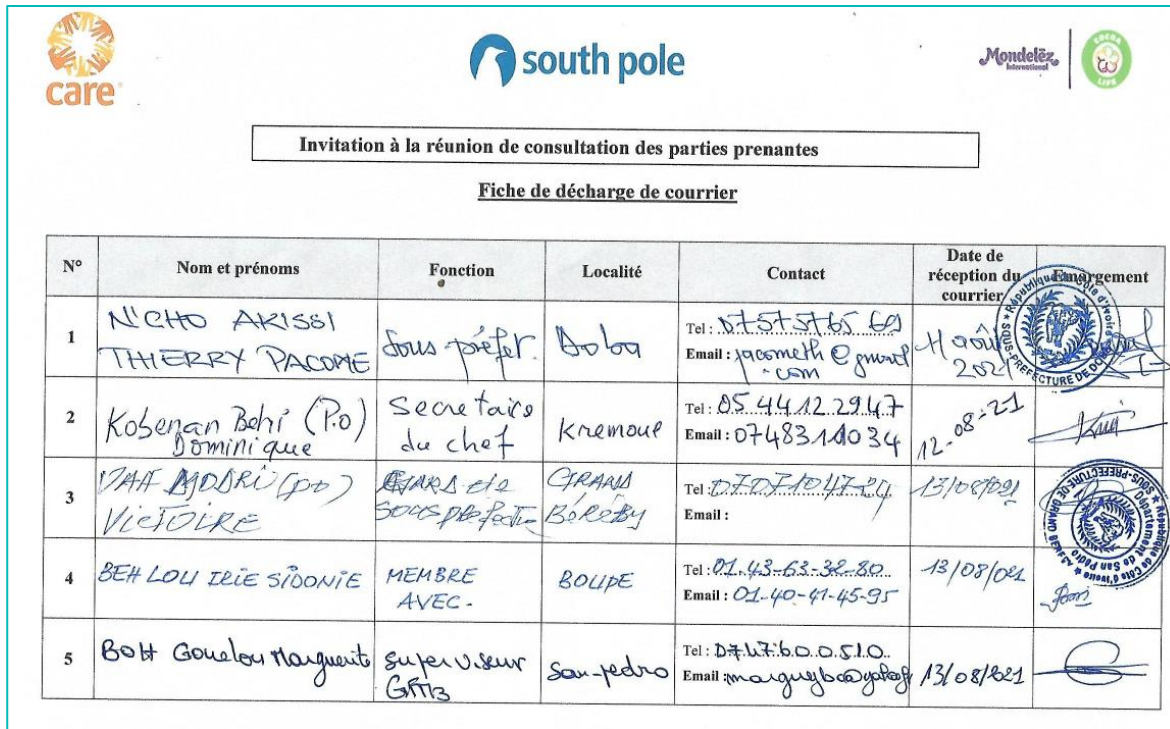 care
south pole
Mondelēz
International
COCOA
LIFE
Invitation à la réunion de consultation des parties prenantes
Fiche de décharge de courrier
N° Nom et prénoms Fonction Localité Contact Date de réception du courrier Emargement
1 N'CHO AKISSI THIERRY PACOME Sous préfet Doba Tel : 0757576569 Email : pacometh@gmail.com août 2021
République de Côte d'Ivoire SOUS-PREFECTURE DE
2 Kobenan Behi (P.o) Dominique Secretaire du chef Kremoue Tel : 05 44 12 29 47 Email : 12-08-21
3 (po) VICTOIRE GRAND BÉRÉBY Tel : 0707104724 Email : 13/08/021
République de Côte d'Ivoire Département de San Pedro SOUS-PREFECTURE DE GRAND BEREBY
4 BEH LOU IRIE SIDONIE MEMBRE AVEC. BOUPE Tel : 01-43-63-38-80 Email : 01-40-41-45-95 13/08/021
5 BOH Gouelou Marguerite Superviseur San-pedro Tel : 0747600510 Email : 13/08/2021